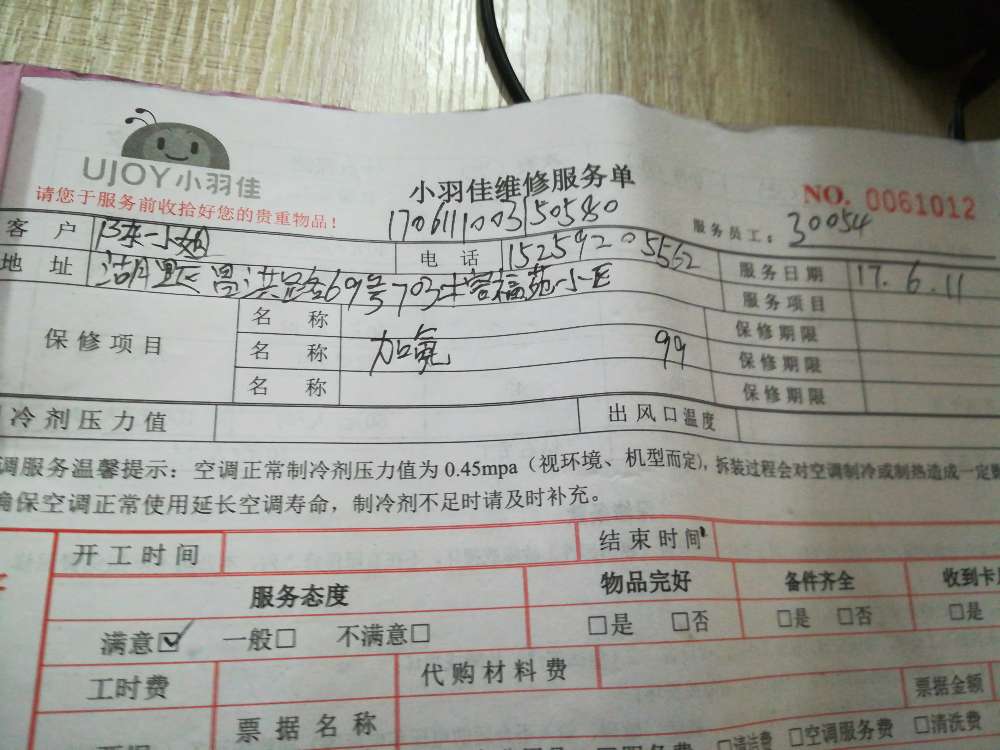 UJOY小羽佳
小羽佳维修服务单
NO. 0061012
请您于服务前收拾好您的贵重物品！
1706111003150580
服务员工：30054
客 户 小姐 电 话 15259205562 服务日期 17.6.11
地 址 湖里区 69号703 福苑小区 服务项目
保修项目
名 称 保修期限
名 称 加氟 99 保修期限
名 称 保修期限
冷剂压力值 出风口温度
调服务温馨提示：空调正常制冷剂压力值为 0.45mpa（视环境、机型而定），拆装过程会对空调制冷或制热造成一定
确保空调正常使用延长空调寿命，制冷剂不足时请及时补充。
开工时间 结束时间
服务态度 物品完好 备件齐全 收到卡
满意☑ 一般□ 不满意□ □是 □否 □是 □否 □是
工时费 代购材料费
票据名称 票据金额
□清洁费 □空调服务费 □清洗费